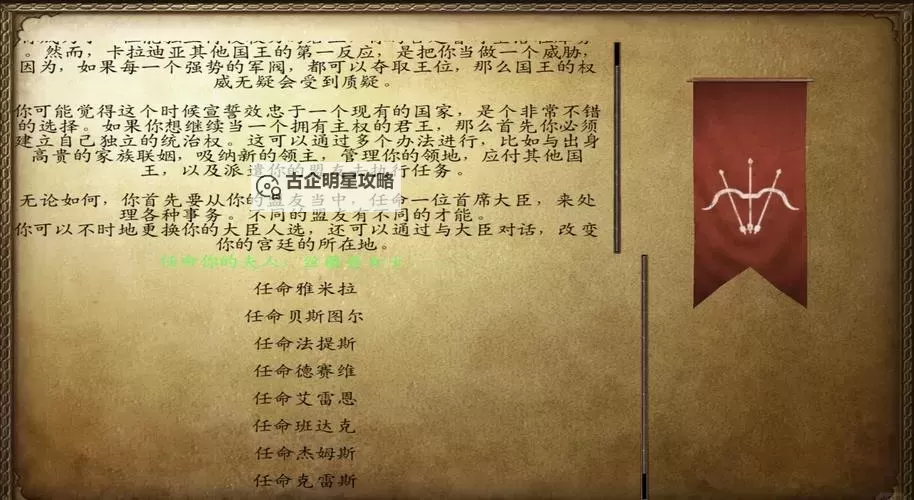 。然而，卡拉迪亚其他国王的第一反应，是把你当做一个威胁，
因为，如果每一个强势的军阀，都可以夺取王位，那么国王的权
威无疑会受到质疑。
你可能觉得这个时候宣誓效忠于一个现有的国家，是个非常不错
的选择。如果你想继续当一个拥有主权的君王，那么首先你必须
建立自己独立的统治权。这可以通过多个办法进行，比如与出身
高贵的家族联姻，吸纳新的领主，管理你的领地，应付其他国
王，以及派遣你的盟友去执行任务。
古企明星攻略
无论如何，你首先要从你的盟友当中，任命一位首席大臣，来处
理各种事务。不同的盟友有不同的才能。
你可以不时地更换你的大臣人选，还可以通过与大臣对话，改变
你的宫廷的所在地。
任命你的夫人，
任命雅米拉
任命贝斯图尔
任命法提斯
任命德赛维
任命艾雷恩
任命班达克
任命杰姆斯
任命克雷斯